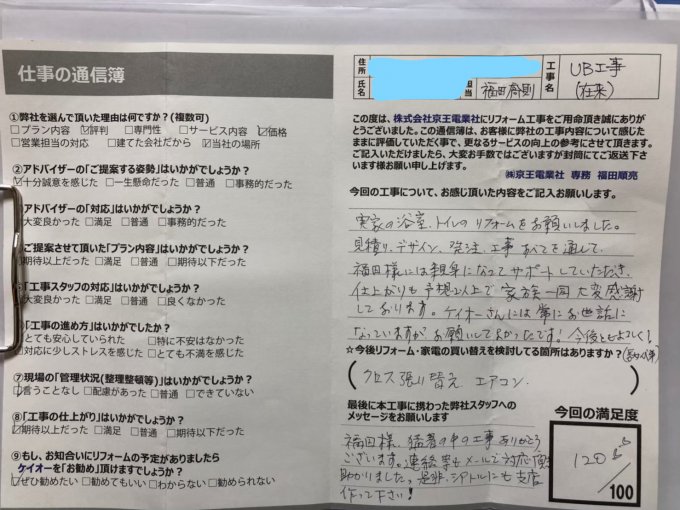 仕事の通信簿
①弊社を選んで頂いた理由は何ですか?(複数可)
□プラン内容 ☑評判 □専門性 □サービス内容 ☑価格
□営業担当の対応 □建てた会社だから ☑当社の場所
②アドバイザーの「ご提案する姿勢」はいかがでしょうか?
☑十分誠意を感じた □一生懸命だった □普通 □事務的だった
アドバイザーの「対応」はいかがでしょうか?
大変良かった □満足 □普通 □事務的だった
ご提案させて頂いた「プラン内容」はいかがでしょうか?
期待以上だった □満足 □普通 □期待以下だった
「工事スタッフの対応」はいかがでしょうか?
大変良かった □満足 □普通 □良くなかった
「工事の進め方」はいかがでしたか?
とても安心していられた □特に不満はなかった
□対応に少しストレスを感じた □とても不満を感じた
⑦現場の「管理状況(整理整頓等)」はいかがでしょうか?
☑言うことなし □配慮があった □普通 □できていない
⑧「工事の仕上がり」はいかがでしょうか?
☑期待以上だった □満足 □普通 □期待以下だった
⑨もし、お知合いにリフォームの予定がありましたら
ケイオーを「お勧め」頂けますでしょうか?
☑ぜひ勧めたい □勧めてもいい □わからない □勧められない
住所
氏名
担当
福田
工事名
UB工事
(在来)
この度は、株式会社京王電業社にリフォーム工事をご用命頂き誠にありが
とうございました。この通信簿は、お客様に弊社の工事内容について感じた
ままに評価していただく事で、更なるサービスの向上の参考にさせて頂きます。
ご記入いただけましたら、大変お手数ではございますが封筒にてご返送下さ
います様お願い申し上げます。
㈱京王電業社 専務 福田順亮
今回の工事について、お感じ頂いた内容をご記入お願いします。
実家の浴室、トイレのリフォームをお願いしました。
見積り、デザイン、発注、工事 すべてを通して、
福田様には親身になってサポートしていただき、
仕上がりも予想以上で 家族一同 大変感謝
しております。ケイオーさんには常にお世話に
なっていますが、お願いしてよかったです!今後ともよろしく!
☆今後リフォーム・家電の買い替えを検討してる箇所はありますか?
(クロス張り替え エアコン )
最後に本工事に携わった弊社スタッフへの
メッセージをお願いします
福田様、猛暑の中の工事 ありがとう
ございます。連絡等もメールで対応頂き
助かりました。是非、シアトルにも支店
作って下さい!
今回の満足度
120
/100